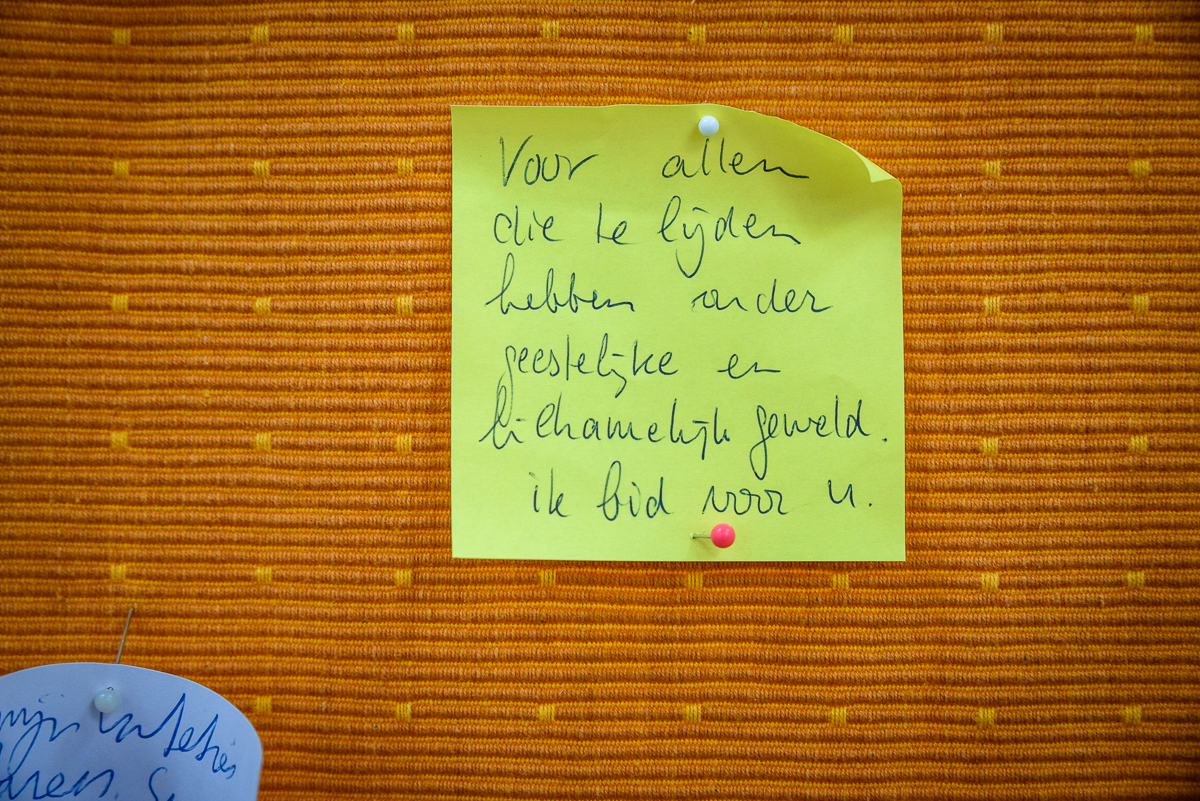 Voor allen
die te lijden
hebben onder
geestelijke en
lichamelijk geweld.
ik bid voor u.
mijn intenties